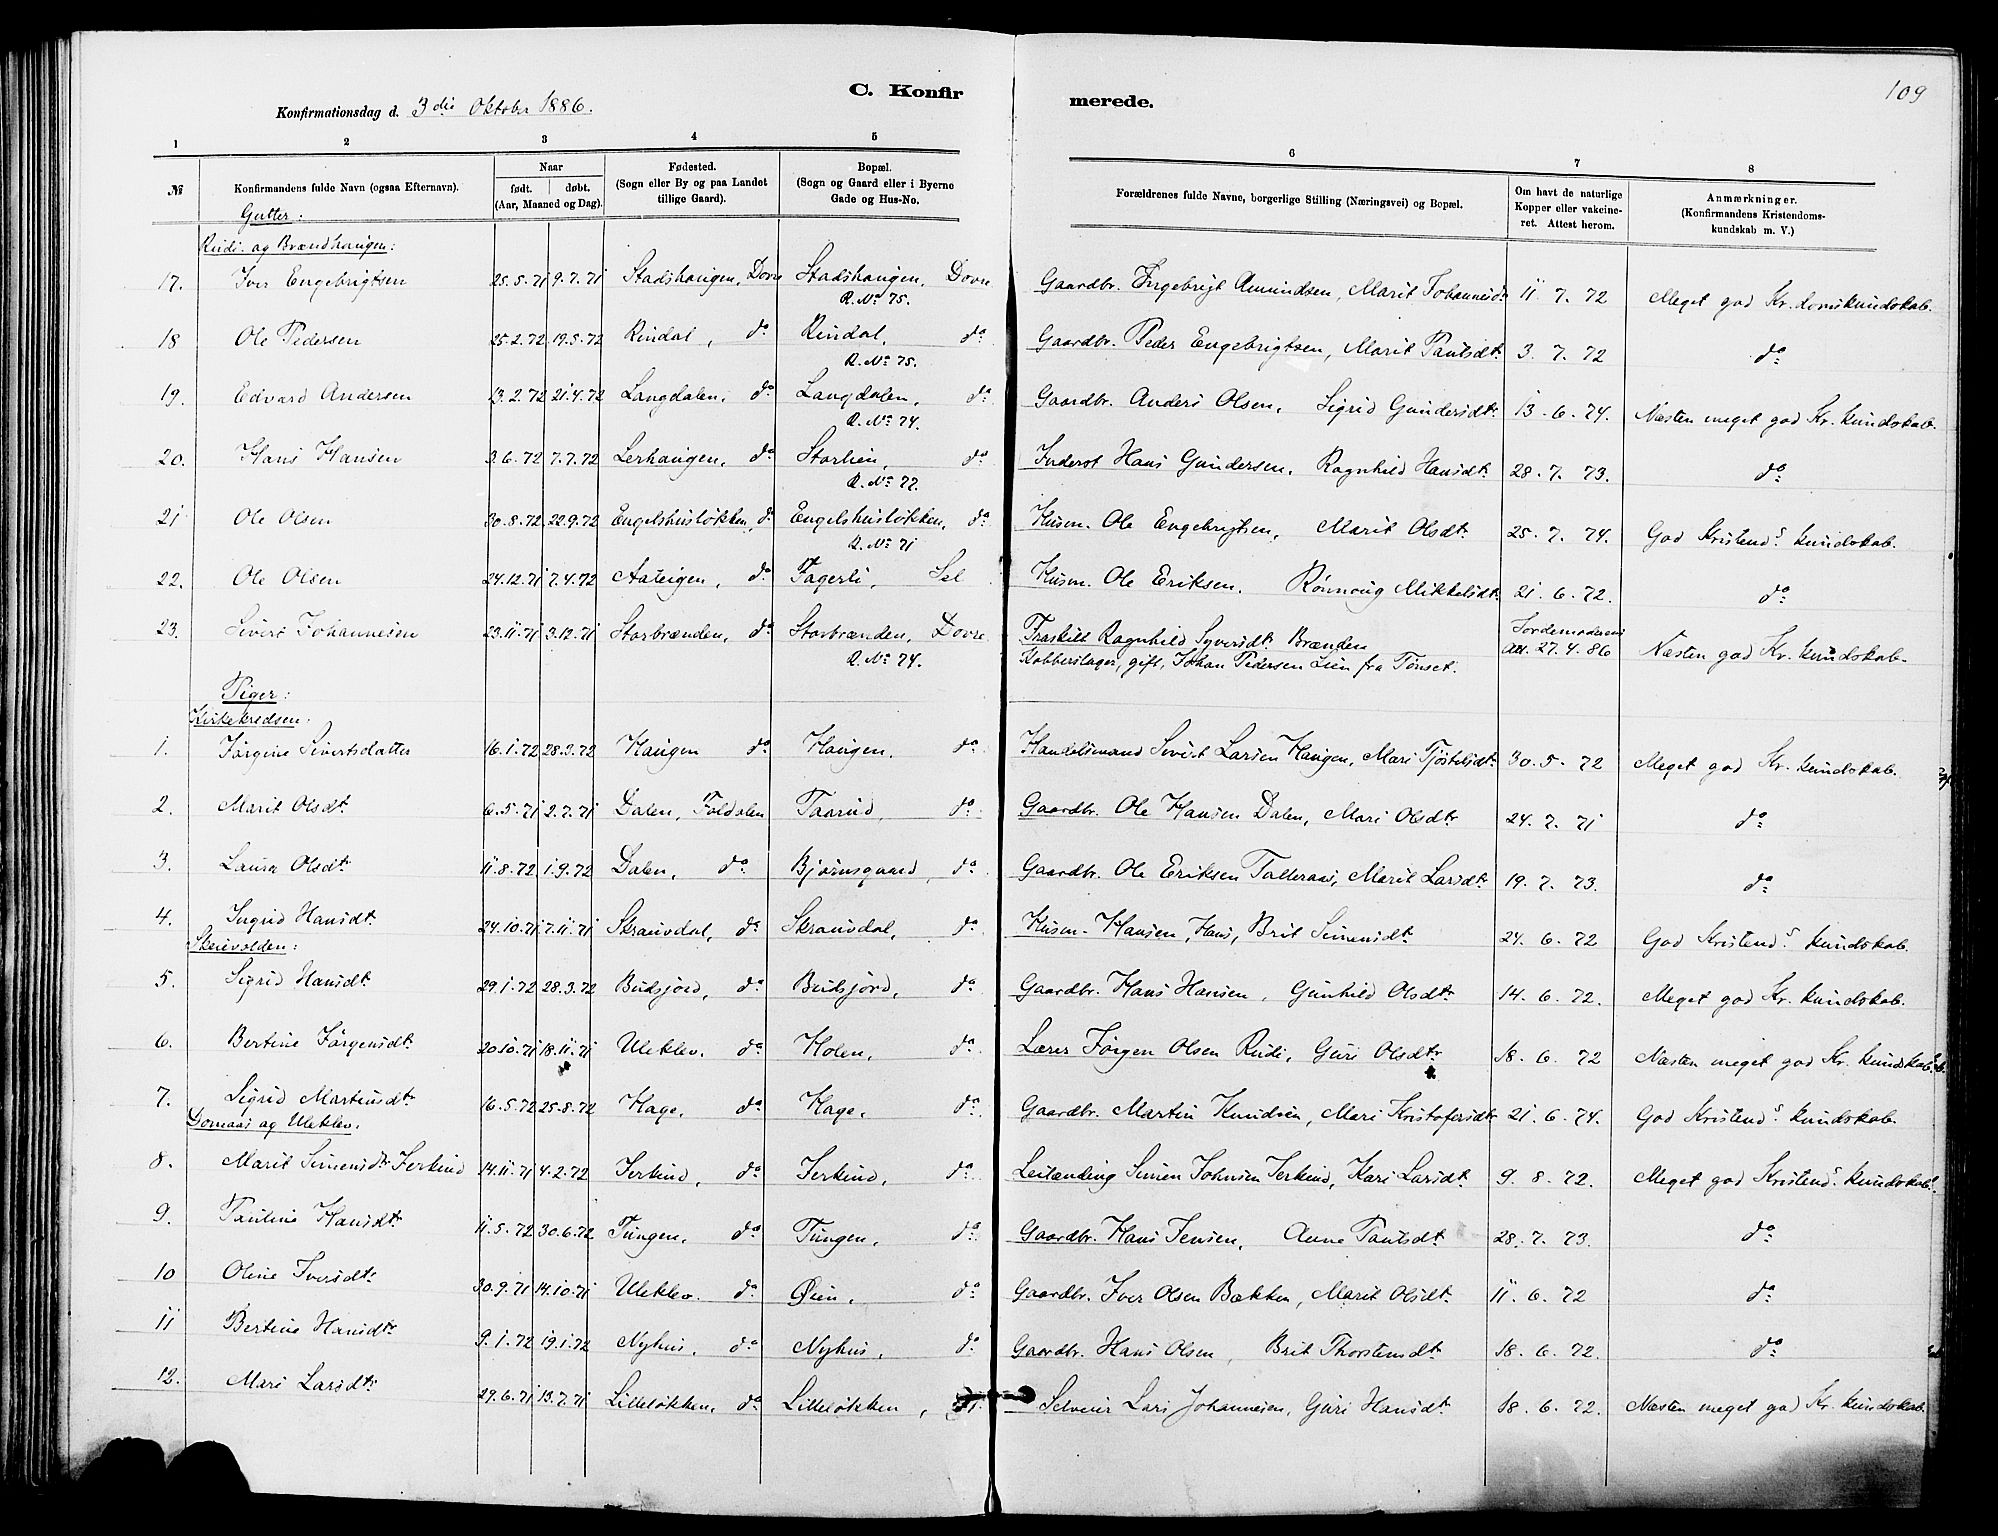 109
C. Konfirmerede.
Konfirmationsdag d. 3die Oktober 1886.
1 2 3 4 5 6 7 8
№ Konfirmandens fulde Navn (ogsaa Efternavn). Naar født. døbt. (Aar, Maaned og Dag). Fødested. (Sogn eller By og paa Landet tillige Gaard). Bopæl. (Sogn og Gaard eller i Byerne Gade og Hus-No. Forældrenes fulde Navne, borgerlige Stilling (Næringsvei) og Bopæl. Om havt de naturlige Kopper eller vakcineret. Attest herom. Anmærkninger. (Konfirmandens Kristendomskundskab m. V.)
Gutter:
Rudi- og Brændhaugen:
17. Iver Engebrigtsen 25.5.71 9.7.71 Stadshaugen, Dovre Stadshaugen, Dovre R. No 75. Gaardbr. Ingebrigt Amundsen, Marit Johannesdr 11. 7. 72 Meget god Kr.domskundskab.
18 Ole Pedersen 25.2.72 19.5.72 Rindal, do Rindal, do R. No 75. Gaardbr. Peder Engebrigtsen, Marit Paulsdtr 3. 7. 72 do
19. Edvard Andersen 13.2.72 21.4.72 Langdalen, do Langdalen, do R. No 74. Gaardbr. Anders Olsen, Sigrid Gundersdtr 13. 6. 74. Næsten meget god Kr. kundskab.
20. Hans Hansen 3.6.72 7.7.72 Lerhaugen, do Storlien, do R. No 72. Inderst Hans Gundersen, Ragnhild Hansdtr 28. 7. 73. do
21 Ole Olsen 30.8.72 22.9.72 Engelshusløkken, do Engelshusløkken, do R. No 71 Husm. Ole Engebrigtsen, Marit Olsdtr 25. 7. 74. God Kristends kundskab.
22. Ole Olsen 24.12.71 7.4.72 Aateigen, do Fagerli, Sel Husm. Ole Eriksen, Rønnoug Mikkelsdtr 21. 6. 72. do
23. Sivert Johannessen 23.11.71 3.12.71 Storbrænden, do Storbrænden, Dovre R. No 74. Fraskilt Ragnhild Syversdtr Brænden Kobberslager, gift, Johan Pedersen Lien fra Tønset. Jordemoderens Att. 27.4.86 Næsten god Kr. kundskab.
Piger:
Kirkekredsen.
1. Jørgine Sivertsdatter 16.1.72 28.3.72 Haugen do Haugen, do Handelsmand Sivert Larsen Haugen, Mari Tjøstelsdtr 30. 5. 72 Meget god Kr. kundskab.
2. Marit Olsdtr 6.5.71 2.7.71 Dalen, Foldalen Taarud, do Gaardbr. Ole Hansen Dalen, Mari Olsdtr 24. 7. 71 do
3. Laura Olsdtr 11.8.72 1.9.72 Dalen, do Bjørnsgaard, do Gaardbr. Ole Eriksen Talleraas, Marit Larsdtr 19. 7. 73. do
4. Ingrid Hansdtr 24.10.71 7.11.71 Skrauvdal, do Skrauvdal, do Husm. Hansen, Hans, Brit Simensdtr 24. 6. 72 God Kristends kundskab.
Skeivolden:
5. Sigrid Hansdtr 29.1.72 28.3.72 Budsjord, do Budsjord, do Gaardbr. Hans Hansen, Gunhild Olsdtr 14. 6. 72. Meget god Kr. kundskab.
6. Bertine Jørgensdtr 20.10.71 18.11.71 Uleklev. do Holen, do Lærer Jørgen Olsen Rudi, Guri Olsdtr 18. 6. 72 Næsten meget god Kr. kundskab.
7. Sigrid Martinsdtr 16.5.72 25.8.72 Hage, do Hage, do Gaardbr. Martin Knudsen, Mari Kristofersdtr 21. 6. 74. God Kristends kundskab.
Domaas og Uleklev.
8. Marit Simensdtr Jerkind 14.11.71 4.2.72 Jerkind, do Jerkind, do Leilænding Simen Johnsen Jerkind, Kari Larsdtr 9. 8. 72. Meget god Kristends kundskab.
9. Pauline Hansdtr 11.5.72 30.6.72 Tungen, do Tungen, do Gaardbr. Hans Jensen, Anne Paulsdtr 28. 7. 73. do
10 Oline Iversdtr 30.9.71 14.10.71 Uleklev. do Øien, do Gaardbr. Iver Olsen Bækken, Marit Olsdtr 11. 6. 72 do
11 Bertine Hansdtr 9.1.72 19.1.72 Nyhus, do Nyhus, do Gaardbr. Hans Olsen, Brit Thorstensdtr 18. 6. 72. do
12. Mari Larsdtr 29.6.71 13.7.71 Lilleløkken, do Lilleløkken, Selveier Lars Johannesen, Guri Hansdtr 18. 6. 72. Næsten meget god Kr. kundskab.